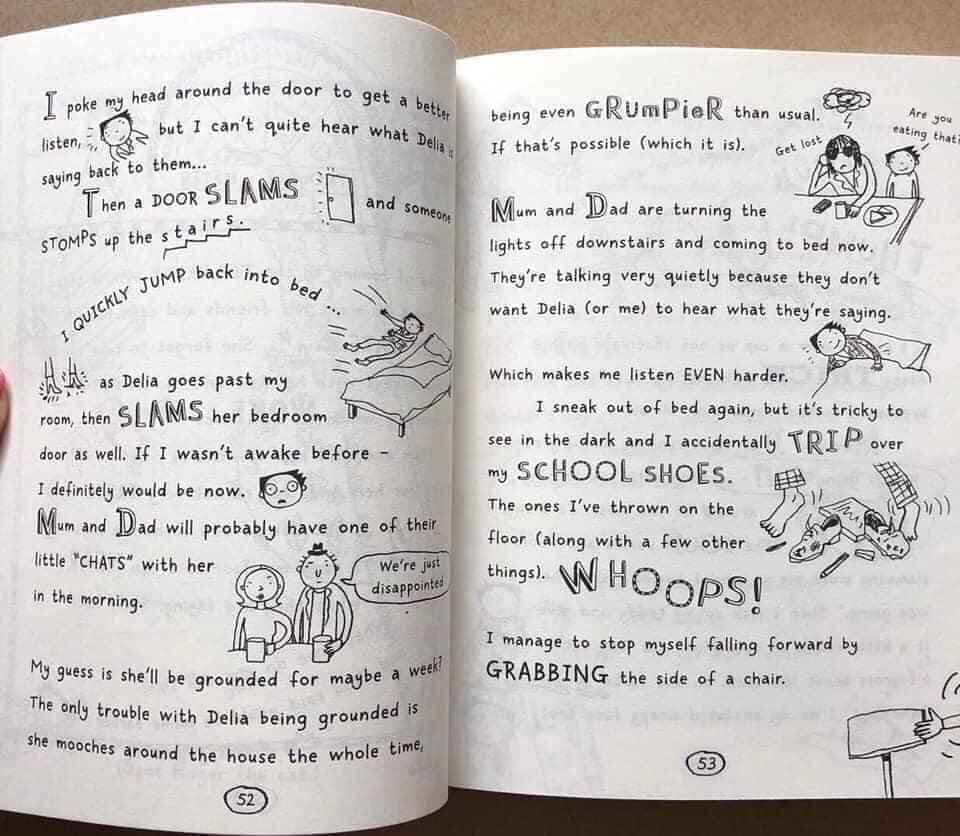 I poke my head around the door to get a better
listen, but I can't quite hear what Delia is
saying back to them...
Then a DOOR SLAMS and someone
STOMPS up the stairs.
I QUICKLY JUMP back into bed...
as Delia goes past my
room, then SLAMS her bedroom
door as well. If I wasn't awake before –
I definitely would be now.
Mum and Dad will probably have one of their
little "CHATS" with her
in the morning.
We're just
disappointed
My guess is she'll be grounded for maybe a week?
The only trouble with Delia being grounded is
she mooches around the house the whole time,
52
being even GRUMPIER than usual.
If that's possible (which it is).
Get lost
Are you
eating that?
Mum and Dad are turning the
lights off downstairs and coming to bed now.
They're talking very quietly because they don't
want Delia (or me) to hear what they're saying.
Which makes me listen EVEN harder.
I sneak out of bed again, but it's tricky to
see in the dark and I accidentally TRIP over
my SCHOOL SHOES.
The ones I've thrown on the
floor (along with a few other
things). WHOOPS!
I manage to stop myself falling forward by
GRABBING the side of a chair.
53